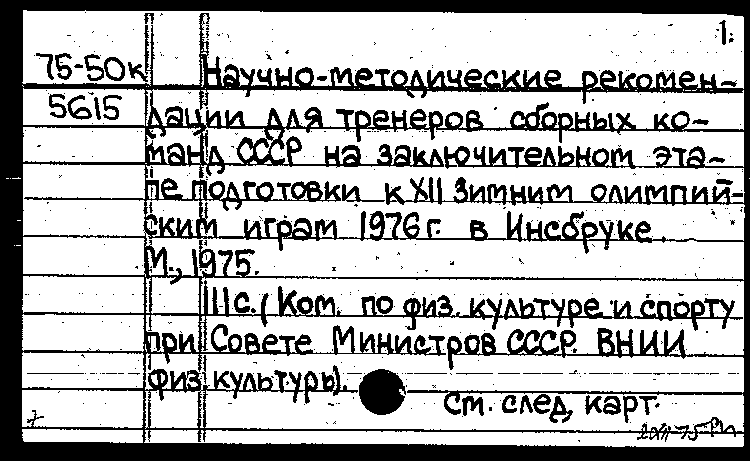 1.
75-50к Научно-методические рекомен-
5615 дации для тренеров сборных ко-
манд СССР на заключительном эта-
пе подготовки к XII Зимним олимпий-
ским играм 1976 г. в Инсбруке.
М., 1975.
111 с. (Ком. по физ. культуре и спорту
при Совете Министров СССР. ВНИИ
физ. культуры).
См. след. карт.